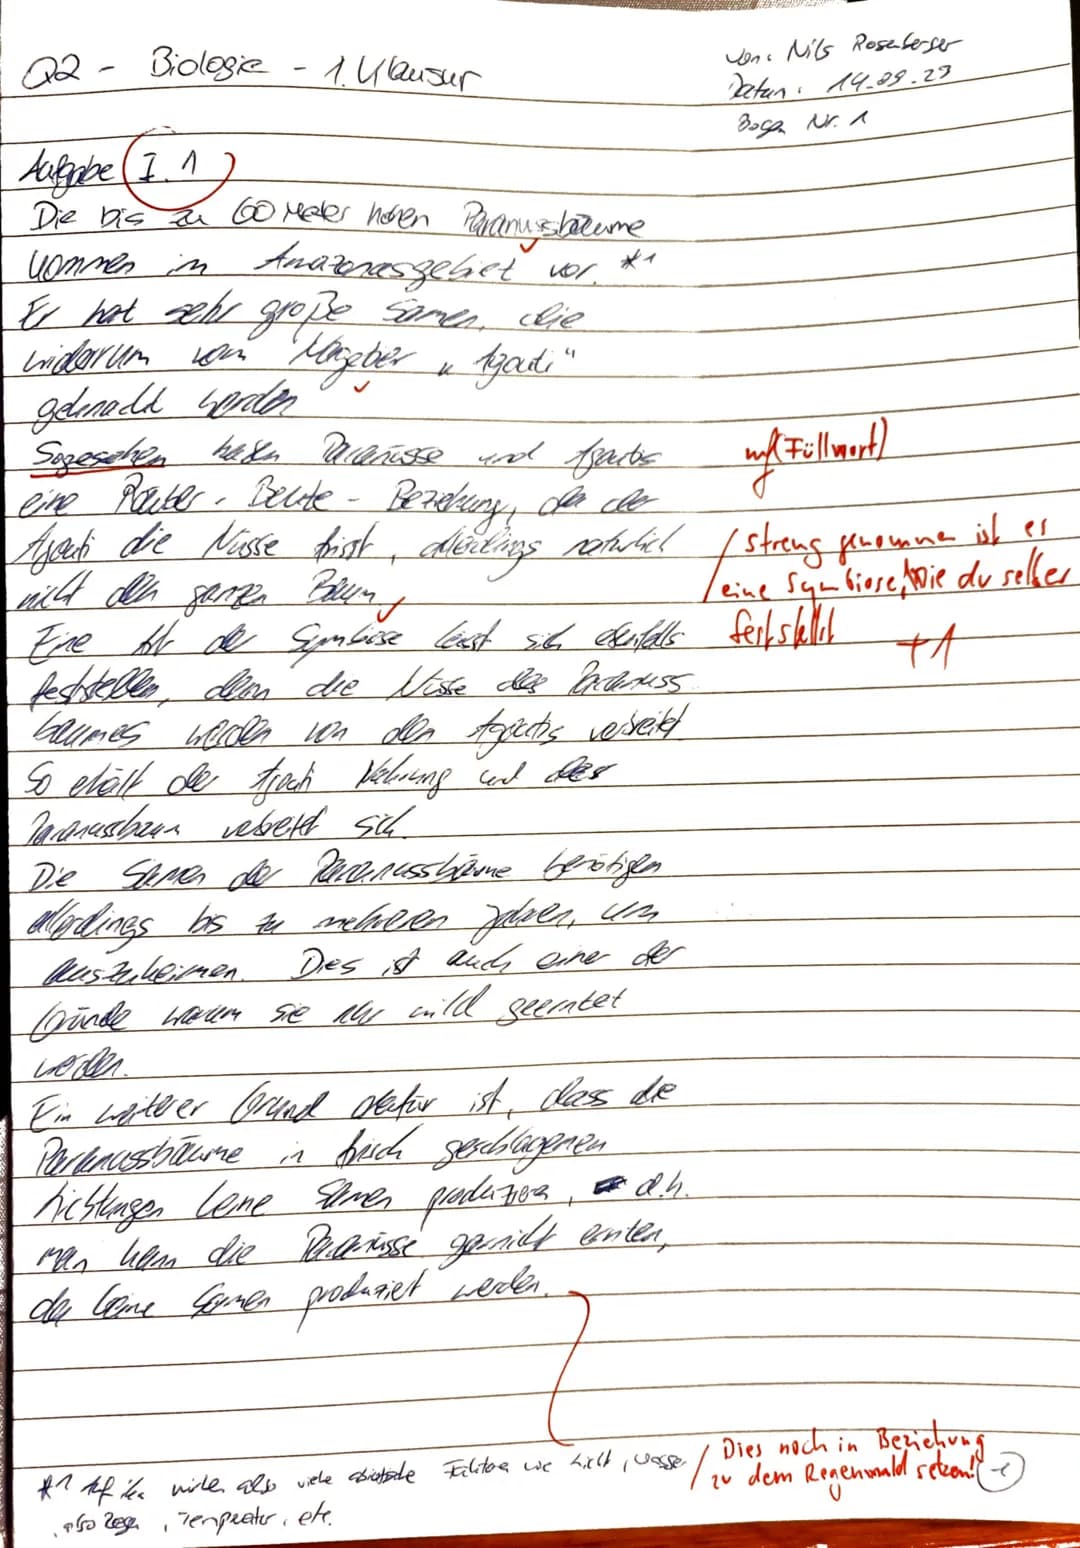 Q2 - Biologie - 1. Klausur
von: Nils Rosenberger
Datum: 14.09.23
Bogen Nr. 1
Aufgabe I.1
Die bis zu 60 Meter hohen Paranussbäume
kommen im Amazonasgebiet vor. *1
Er hat sehr große Samen, die
widerrum vom Nageber „Agouti"
geknackt werden
Sogesehen haben Paranüsse und Agoutis
mf (Füllwort)
eine Räuber-Beute-Beziehung, da der
Agouti die Nüsse frisst, allerdings natürlich
nicht den ganzen Baum
/ streng genommen ist es
/ eine Symbiose, wie du selber
feststellst +1
Eine Art der Symbiose lässt sich ebenfalls
feststellen, denn die Nüsse des Paranuss
baumes werden von den Agoutis verbreitet
So erhält der Agouti Nahrung und der
Paranussbaum verbreitet sich.
Die Samen der Paranussbäume benötigen
allerdings bis zu mehreren Jahren, um
auszukeimen. Dies ist auch einer der
Gründe warum sie nur wild geerntet
werden.
Ein weiterer Grund dafür ist, dass die
Paranussbäume in frisch geschlagenen
Lichtungen keine Samen produzieren, d.h.
man kann die Paranüsse garnicht ernten,
da keine Samen produziert werden.
/ Dies noch in Beziehung
/ zu dem Regenwald setzen!
*1 Auf ihn wirken also viele abiotische Faktoren wie Licht, Wasser
, also Regen, Temperatur, etc.